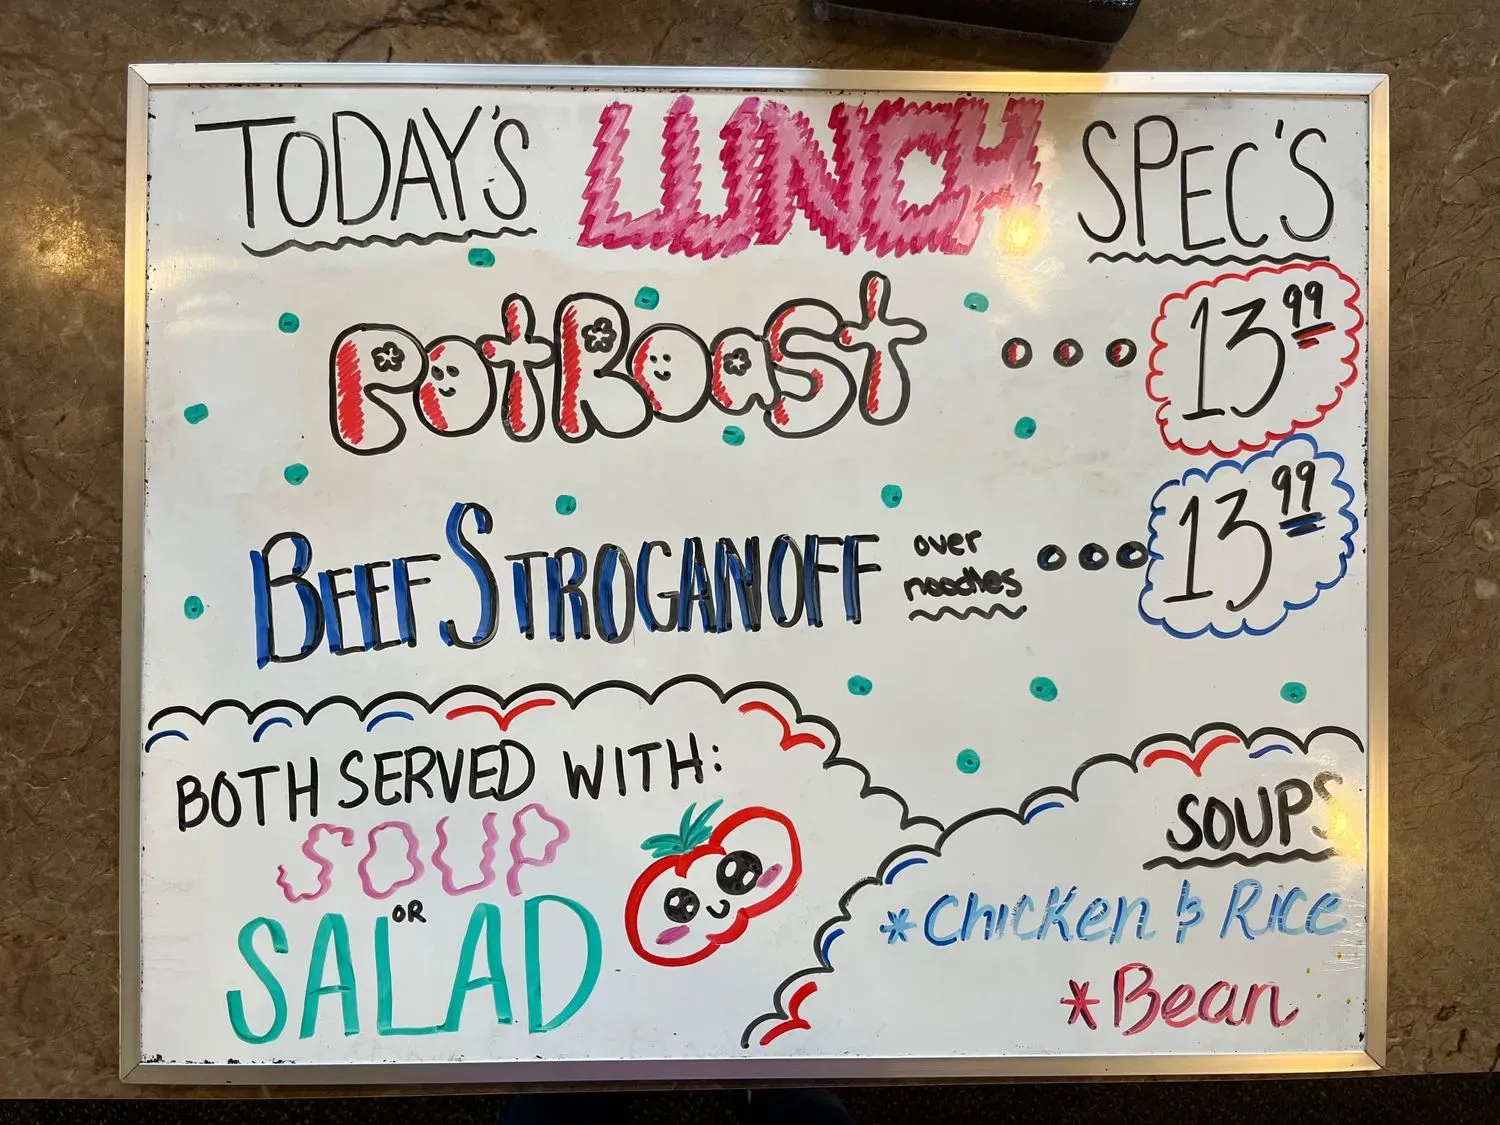 TODAY'S LUNCH SPEC'S
POT ROAST ... 13 99
BEEF STROGANOFF over noodles ... 13 99
BOTH SERVED WITH:
SOUP
OR
SALAD
SOUPS
*Chicken & Rice
*Bean